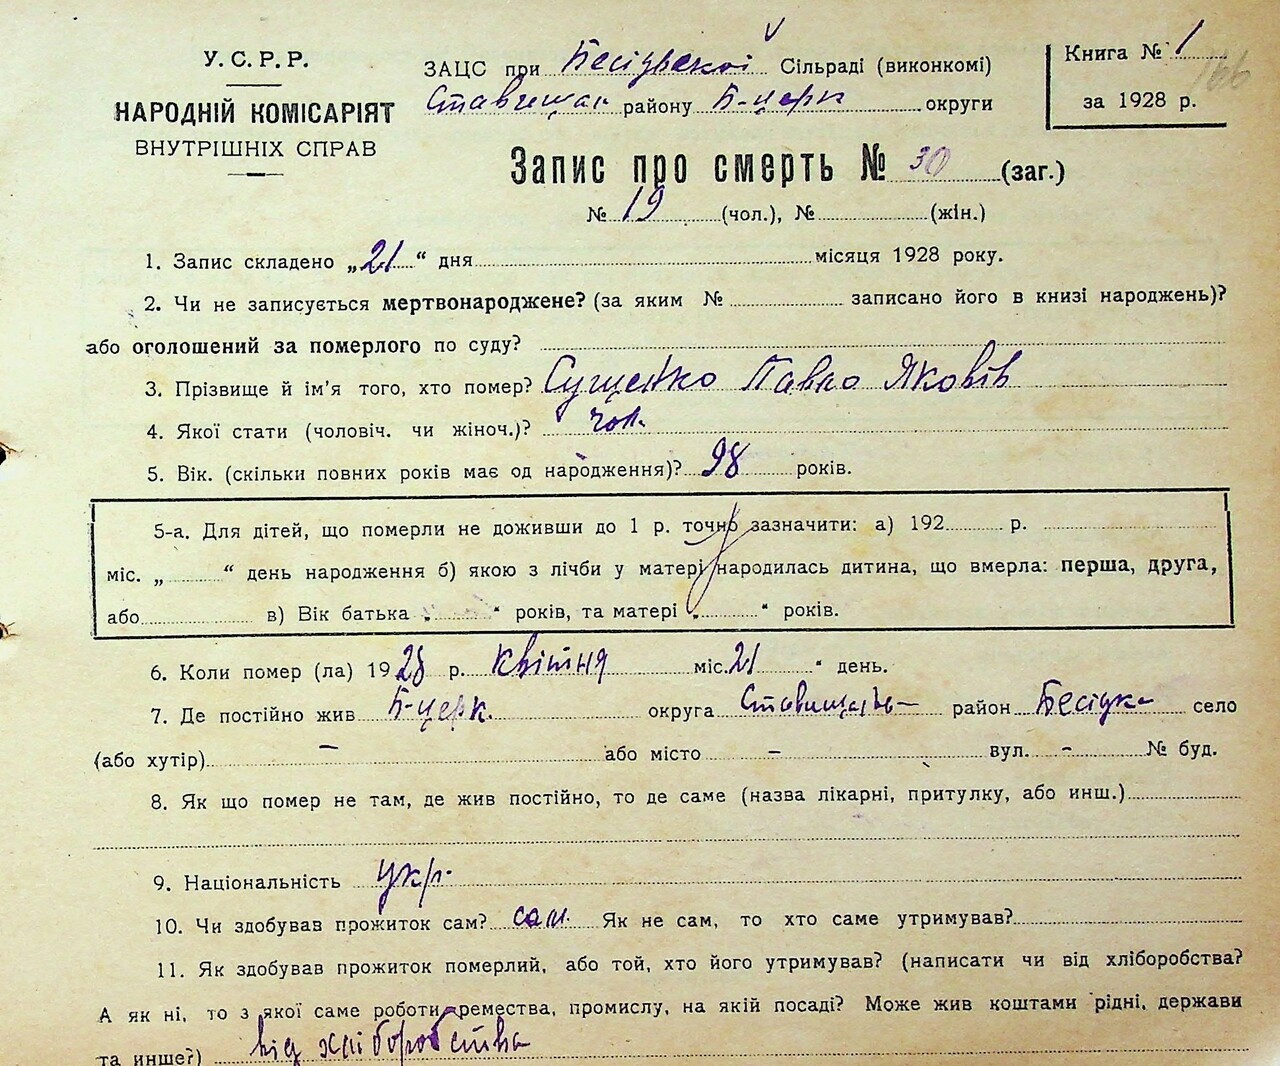 У.С.Р.Р.
НАРОДНІЙ КОМІСАРІЯТ
ВНУТРІШНІХ СПРАВ
ЗАЦС при Бесідвській Сільраді (виконкомі)
Ставищан району Б-церк округи
Книга № 1
за 1928 р.
166
Запис про смерть № 30 (заг.)
№ 19 (чол.), № (жін.)
1. Запис складено „21“ дня місяця 1928 року.
2. Чи не записується мертвонароджене? (за яким № записано його в книзі народжень)?
або оголошений за померлого по суду?
3. Прізвище й ім'я того, хто помер? Сущенко Павло Яковів
4. Якої стати (чоловіч. чи жіноч.)? чол.
5. Вік. (скільки повних років має од народження)? 98 років.
5-а. Для дітей, що померли не доживши до 1 р. точно зазначити: а) 192 р.
міс. „ “ день народження б) якою з лічби у матері народилась дитина, що вмерла: перша, друга,
або в) Вік батька „ “ років, та матері „ “ років.
6. Коли помер (ла) 1928 р. квітня міс. 21 “ день.
7. Де постійно жив Б-церк. округа Ставищансь- район Бесідка село
(або хутір) - або місто - вул. - № буд.
8. Як що помер не там, де жив постійно, то де саме (назва лікарні, притулку, або инш.)
9. Національність укр.
10. Чи здобував прожиток сам? сам. Як не сам, то хто саме утримував?
11. Як здобував прожиток померлий, або той, хто його утримував? (написати чи від хліборобства?
А як ні, то з якої саме роботи ремества, промислу, на якій посаді? Може жив коштами рідні, держави
та инше?) від хліборобства